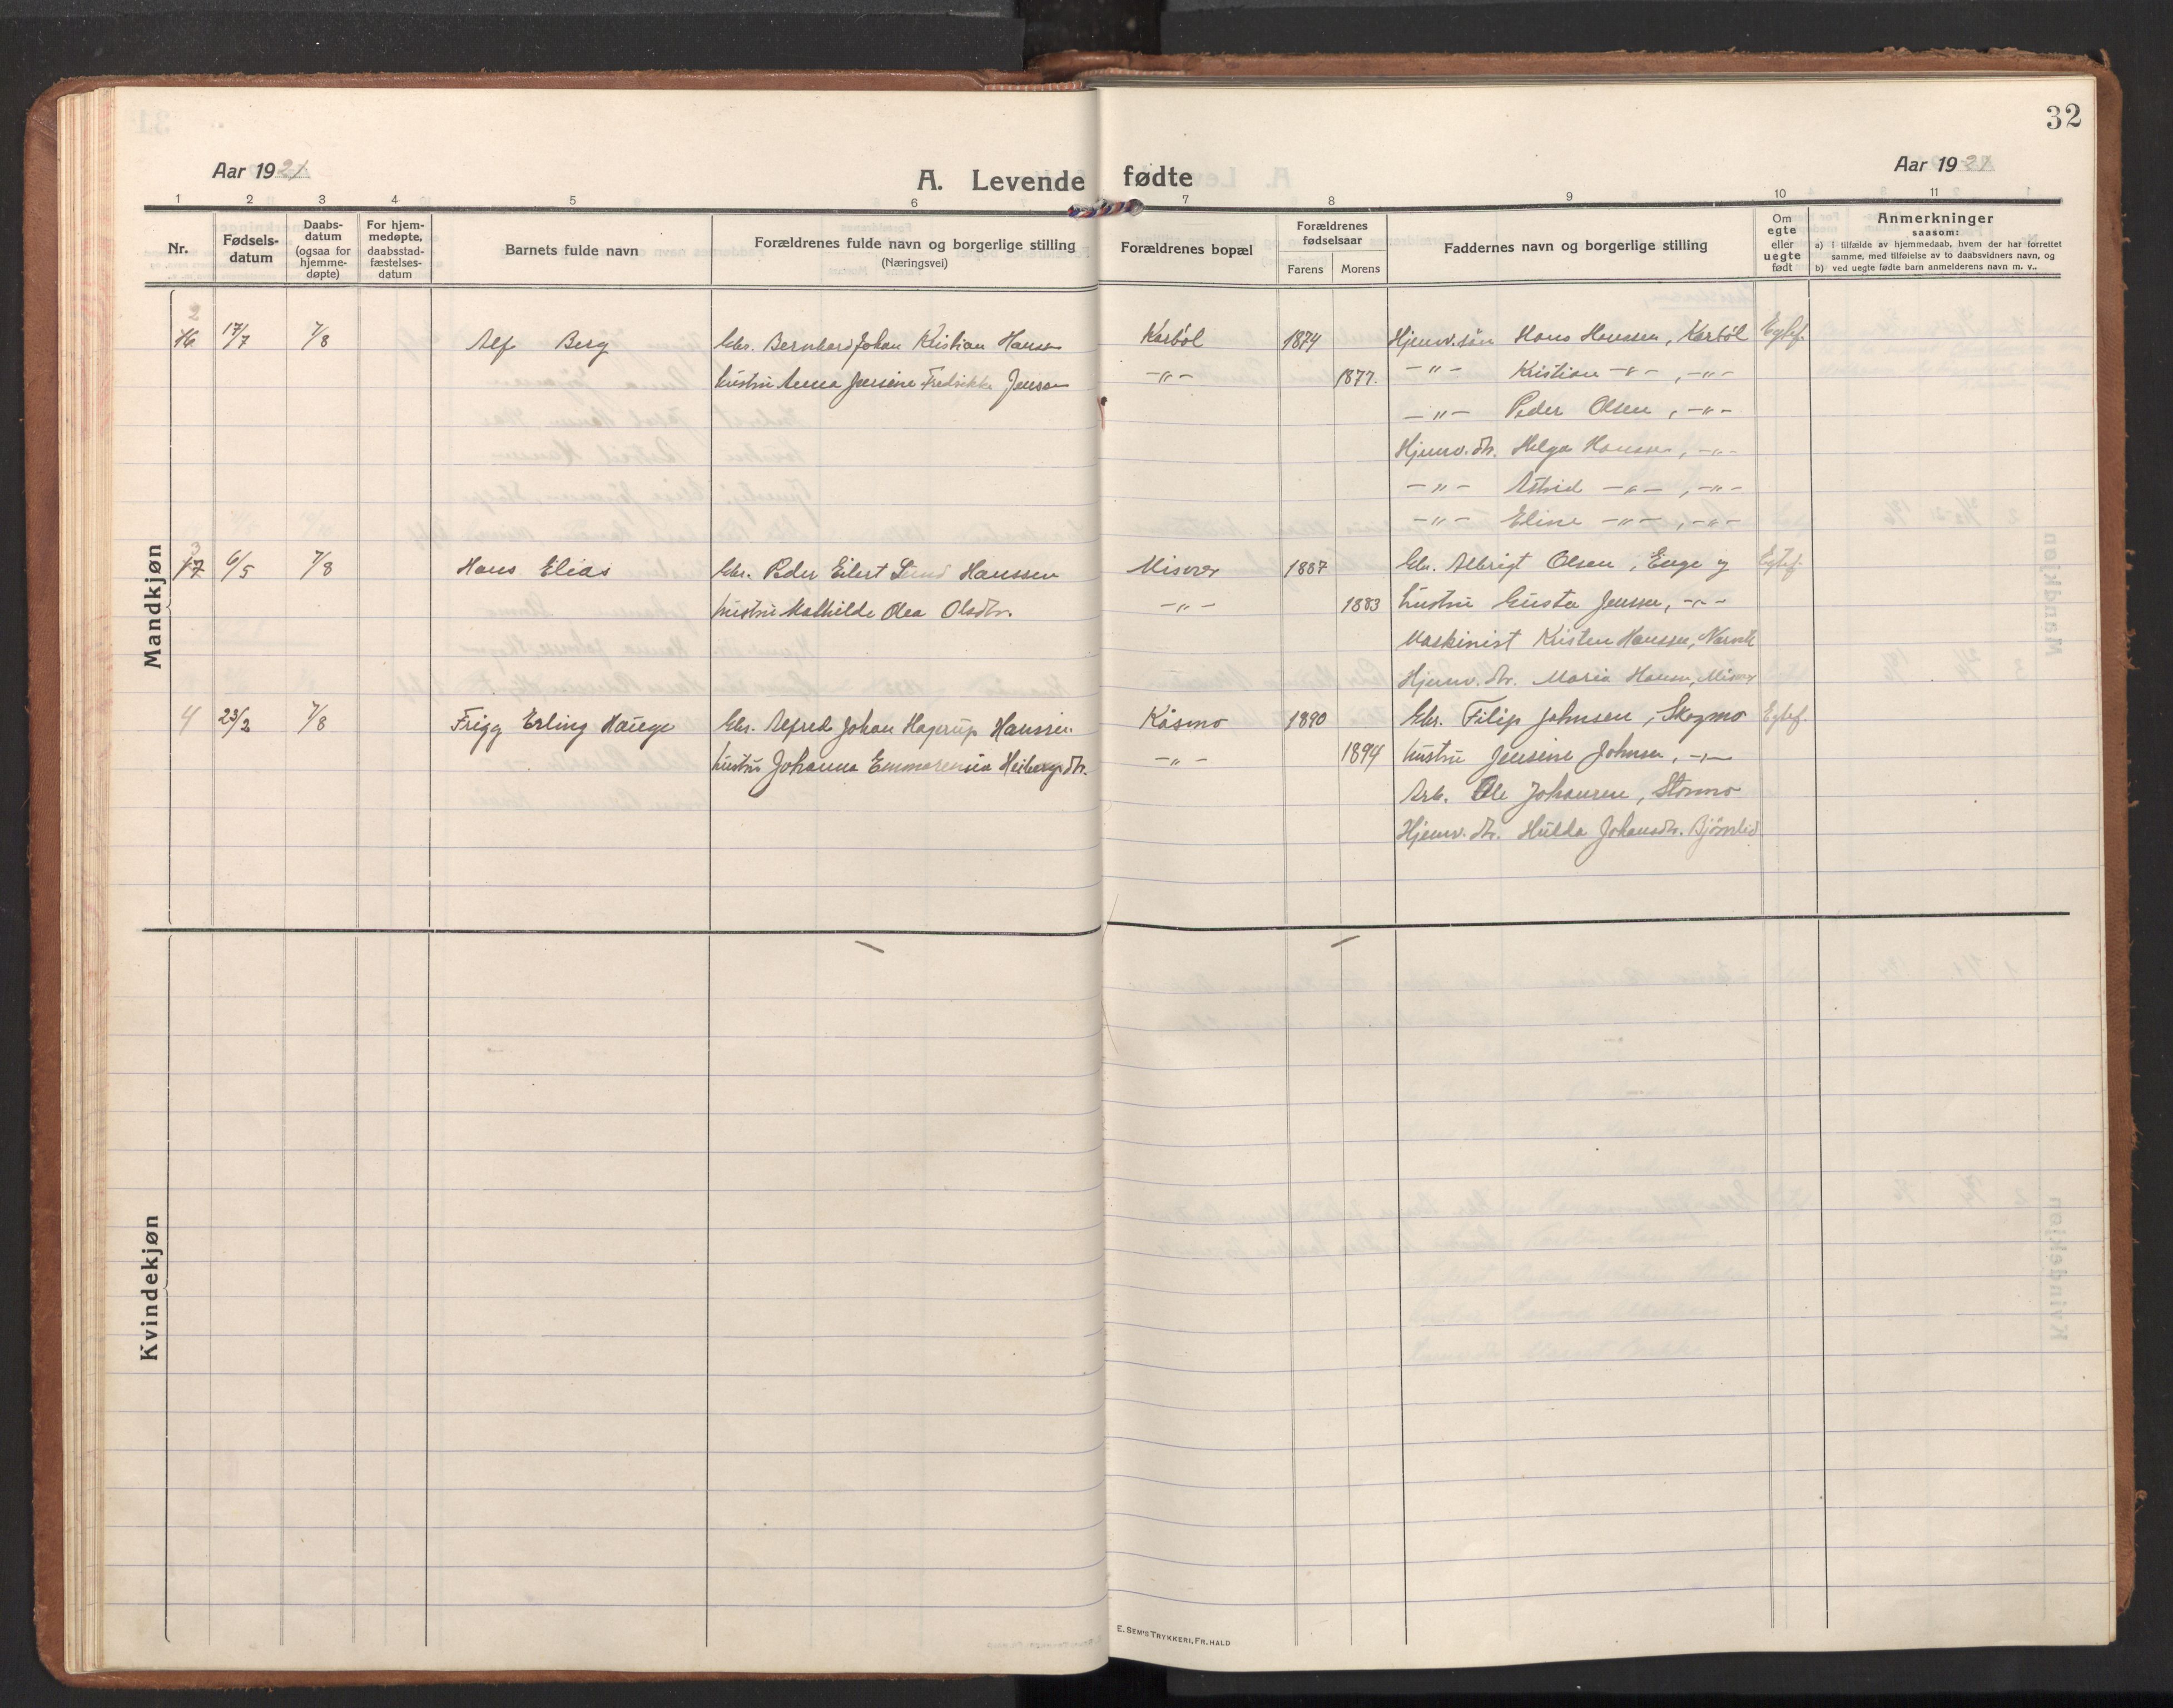 32
Aar 1921
Aar 1921
A. Levende fødte
1 2 3 4 5 6 7 8 9 10 11
Nr.
Fødsels-
datum
Daabs-
datum
(ogsaa for
hjemme-
døpte)
For hjem-
medøpte,
daabsstad-
fæstelses-
datum
Barnets fulde navn
Forældrenes fulde navn og borgerlige stilling
(Næringsvei)
Forældrenes bopæl
Forældrenes
fødselsaar
Farens Morens
Faddernes navn og borgerlige stilling
Om
egte
eller
uegte
født
Anmerkninger
saasom:
a) i tilfælde av hjemmedaab, hvem der har forrettet
samme, med tilføielse av to daabsvidners navn, og
b) ved uegte fødte barn anmelderens navn m. v..
Mandkjøn
2
16 17/7 7/8 Alf Berg Gbr. Bernhard Johan Kristian Hansen Karbøl 1874 Hjemv. søn Hans Hanssen, Karbøl Egtef.
hustru Anna Jensine Fredrikke Jensen -"- 1877. -"- Kristian -"-, -"-
-"- Peder Olsen, -"-
Hjemv. dtr. Helga Hanssen, -"-
-"- Astrid -"-, -"-
-"- Eline -"-, -"-
3
17 6/5 7/8 Hans Elias Gbr. Peder Eilert Lund Hanssen Misvær 1887 Gbr. Albrigt Olsen, Enge og Egtef.
hustru Mathilde Olea Olsdtr. -"- 1883 hustru Gusta Jensen, -"-
Maskinist Kristen Hanssen, Narvik
Hjemv. dtr. Maria Hansen, Misvær
4 23/2 7/8 Frigg Erling Hauge Gbr. Alfred Johan Hagerup Hanssen. Kåsmo 1890 Gbr. Filip Johnsen, Skogmo Egtef.
hustru Johanna Emmorensia Heibergsdtr. -"- 1894 hustru Jensine Johnsen, -"-
Arb. Ole Johansen, Stormo
Hjemv. dtr. Hulda Johansdtr. Bjørnlid
Kvindekjøn
E. SEM'S TRYKKERI, FR. HALD